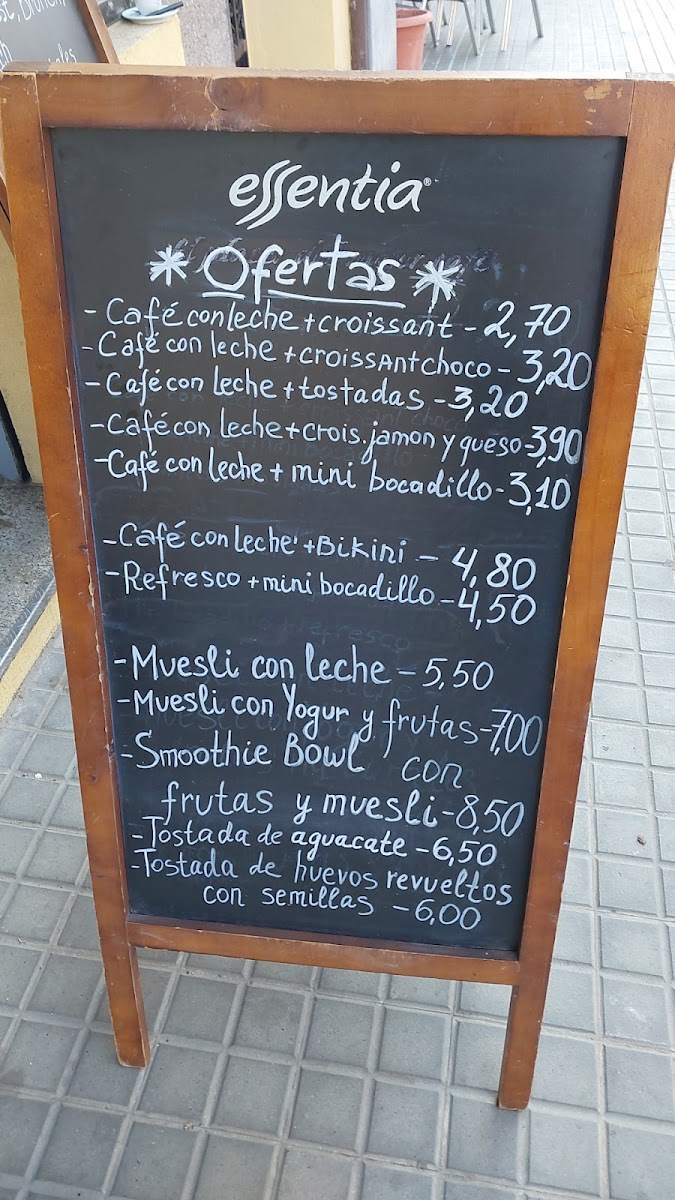 essentia®
* Ofertas *
- Café con leche + croissant - 2,70
- Café con leche + croissant choco - 3,20
- Café con leche + tostadas - 3,20
- Café con leche + crois. jamon y queso - 3,90
- Café con leche + mini bocadillo - 3,10
- Café con leche + Bikini - 4,80
- Refresco + mini bocadillo - 4,50
- Muesli con leche - 5,50
- Muesli con Yogur y frutas - 7,00
- Smoothie Bowl con
frutas y muesli - 8,50
- Tostada de aguacate - 6,50
- Tostada de huevos revueltos
con semillas - 6,00